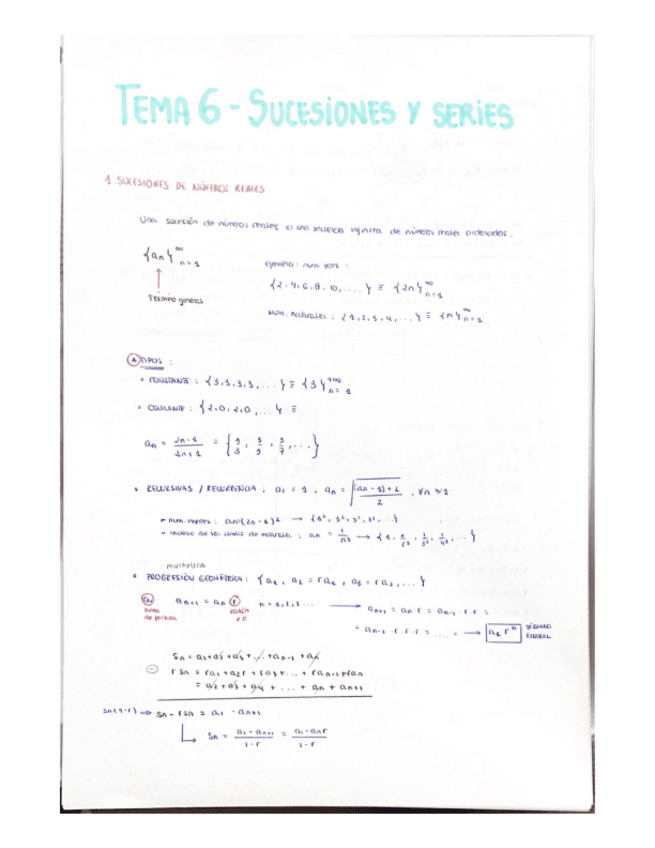 TEMA 6 - SUCESIONES Y SERIES
1. SUCESIONES DE NÚMEROS REALES
Una sucesión de números reales es una secuencia infinita de números reales ordenados.
{an}∞n=1
Término general
Ejemplo: num. pares:
{2,4,6,8,10,....} ≡ {2n}∞n=1
Num. naturales: {1,2,3,4,...} ≡ {n}∞n=1
A TIPOS:
• CONSTANTE: {3,3,3,3,...} ≡ {3}+∞n=1
• OSCILANTE: {2,0,2,0,... } ≡
an = 2n-1 / 2n+1 = {1/3, 3/5, 5/7, ...}
• RECURSIVAS / RECURRENCIA: a1 = 1, an = √((an-1)+2 / 2), ∀n ≥1
num. impares: an=(2n-1)² → {1², 3², 5², 7², ...}
inverso de los cubos de naturales: an = 1/n³ → {1, 1/2³, 1/3³, 1/4³, ...}
• PROGRESIÓN GEOMÉTRICA: {a1, a2 = ra1, a3 = ra2, ...}
a1 an+1 = an r n = 1,2,3... → an+1 = an r = an-1 r r =
Punto de partida
razón ≠ 0
= an-2 r r r = .... = → a1 rⁿ TÉRMINO GENERAL
Sn = a1+a2+a3+...+an-1+an
- rSn = ra1+ra2+ra3+...+ran-1+ran
= a2+a3+a4+...+an+an+1
Sn(1-r) → Sn - rSn = a1 - an+1
Sn = a1-an+1 / 1-r = a1-anr / 1-r